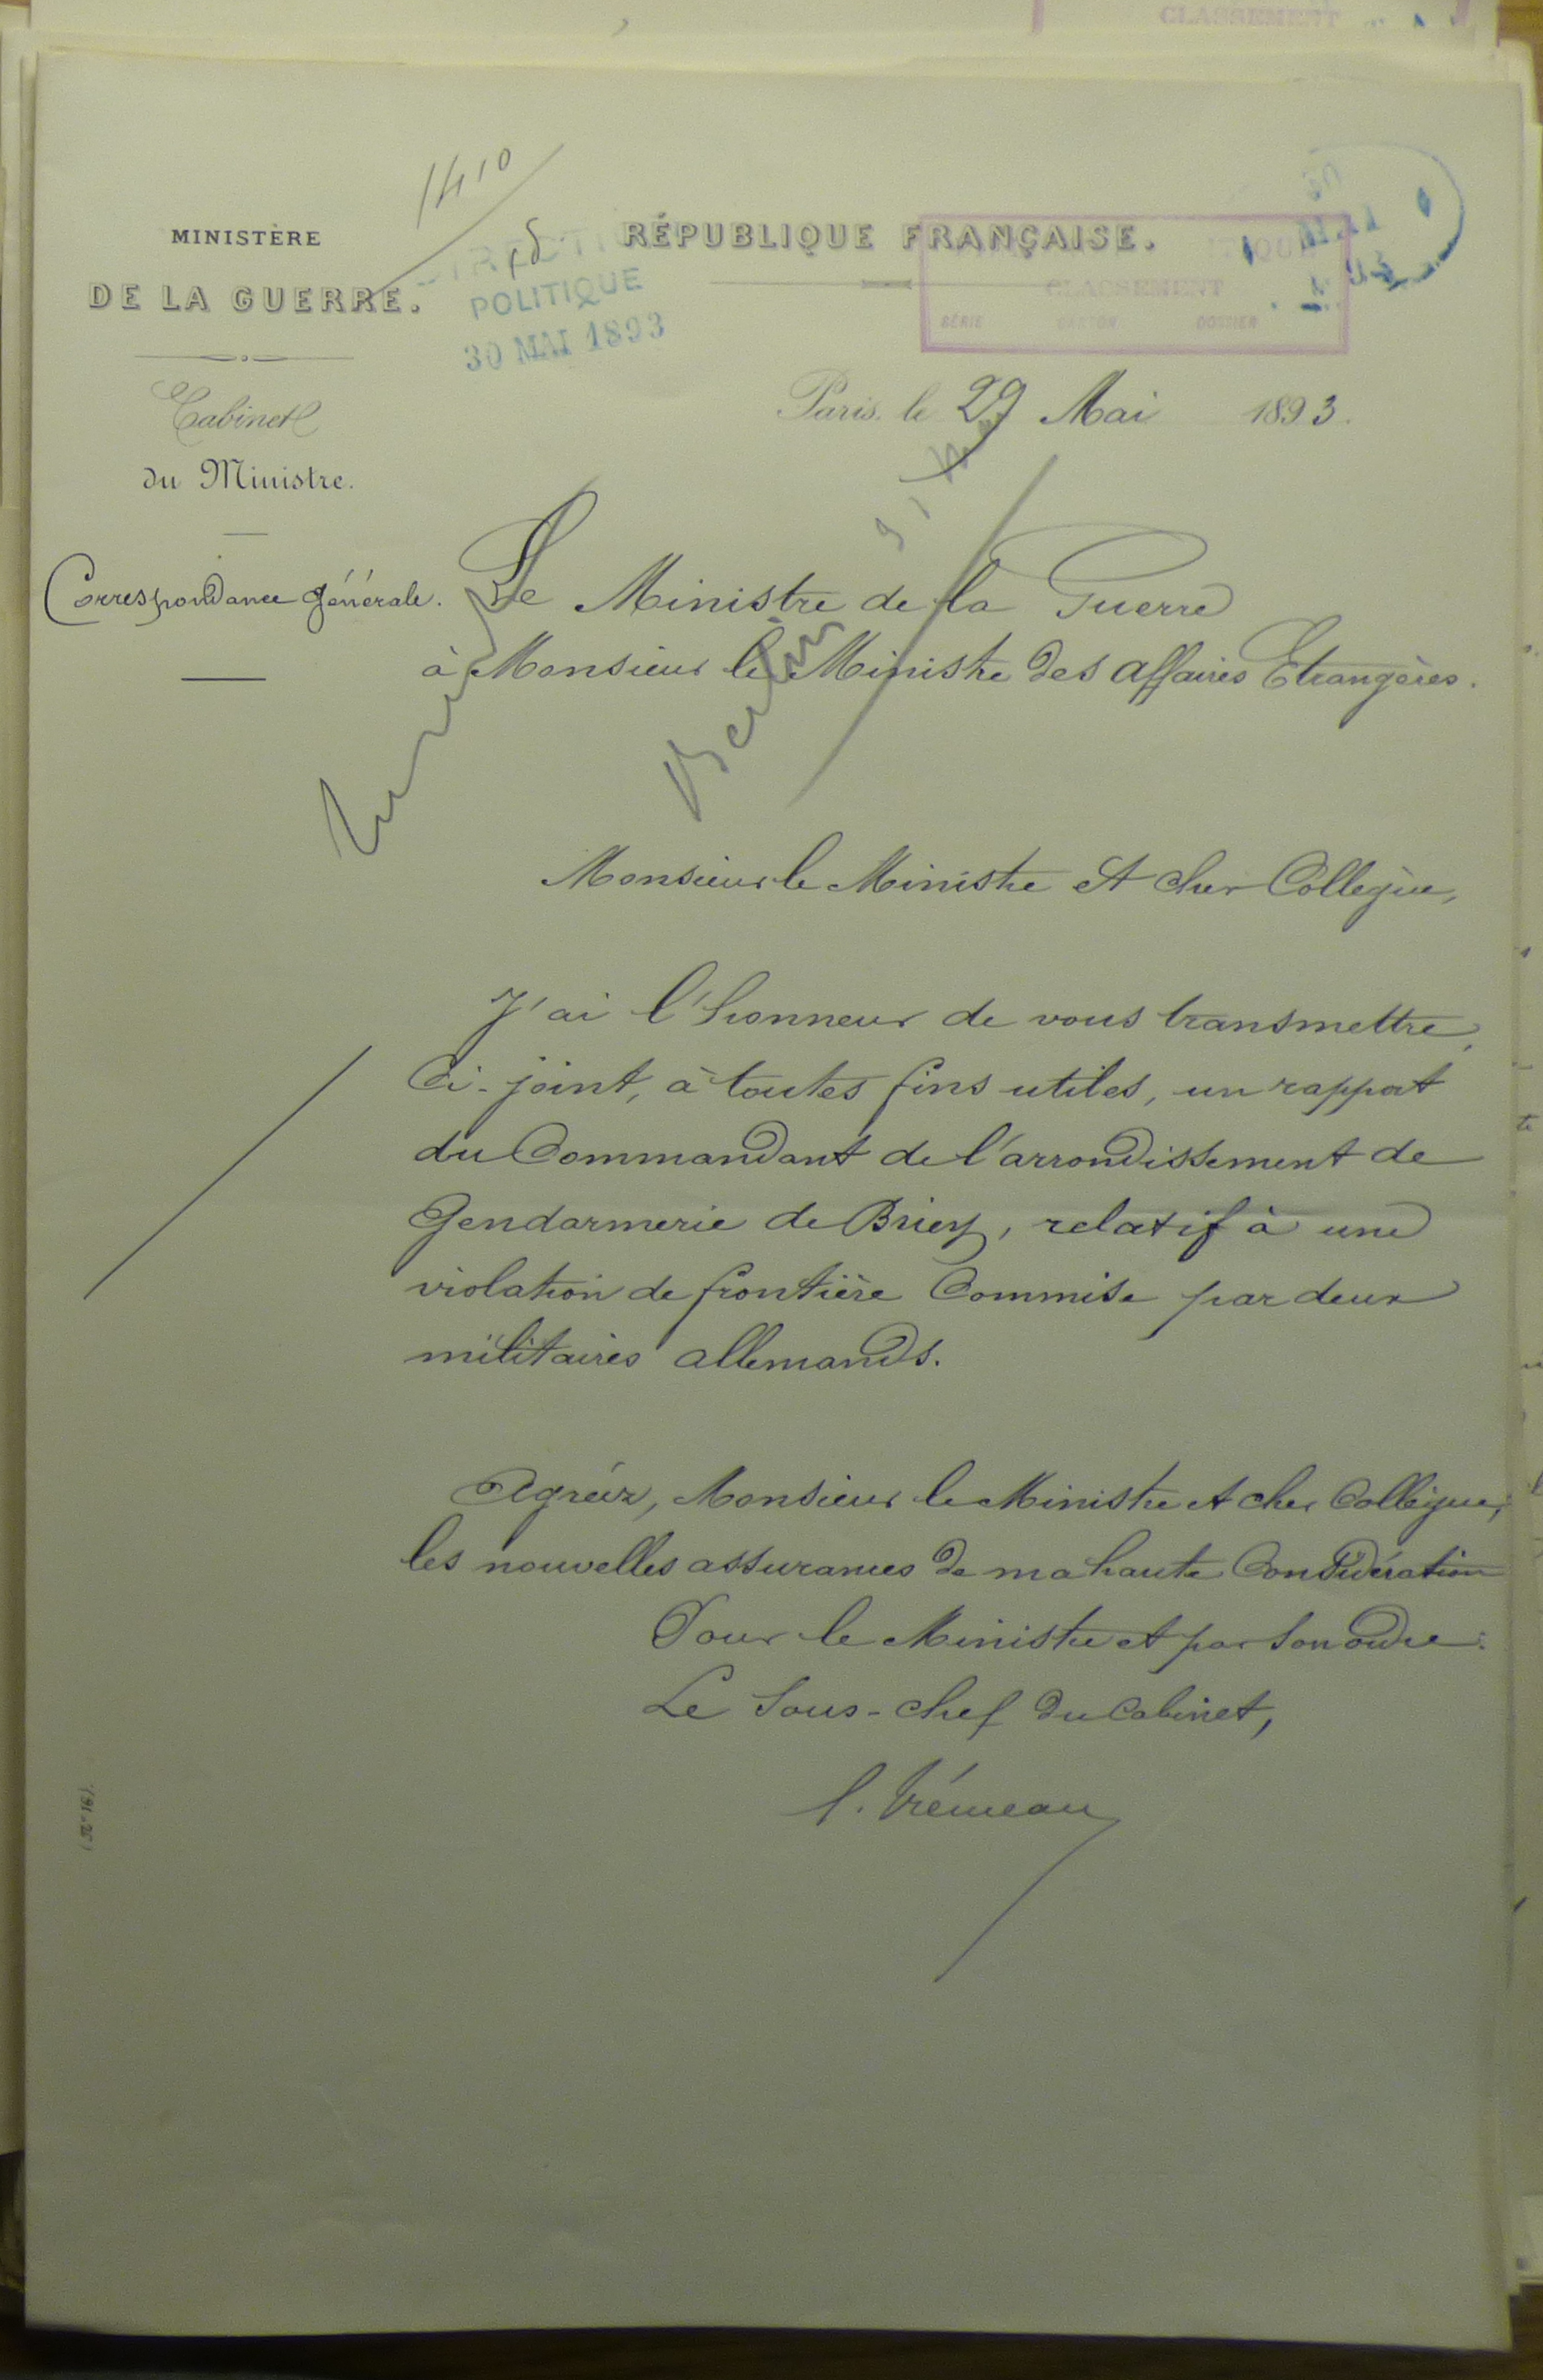 CLASSEMENT
1410
MINISTÈRE
DE LA GUERRE.
RÉPUBLIQUE FRANÇAISE.
POLITIQUE
30 MAI 1893
CLASSEMENT
SÉRIE CARTON DOSSIER
Cabinet
du Ministre.
Paris, le 29 Mai 1893.
Correspondance générale.
Le Ministre de la Guerre
à Monsieur le Ministre des Affaires Etrangères.
Berlin
Monsieur le Ministre et cher Collègue,
J'ai l'honneur de vous transmettre,
Ci-joint, à toutes fins utiles, un rapport
du Commandant de l'arrondissement de
Gendarmerie de Briey, relatif à une
violation de frontière Commise par deux
militaires allemands.
Agréez, Monsieur le Ministre et cher Collègue,
les nouvelles assurances de ma haute Considération
Pour le Ministre et par Son ordre:
Le Sous-chef du Cabinet,
Trémeau
(N° 16).